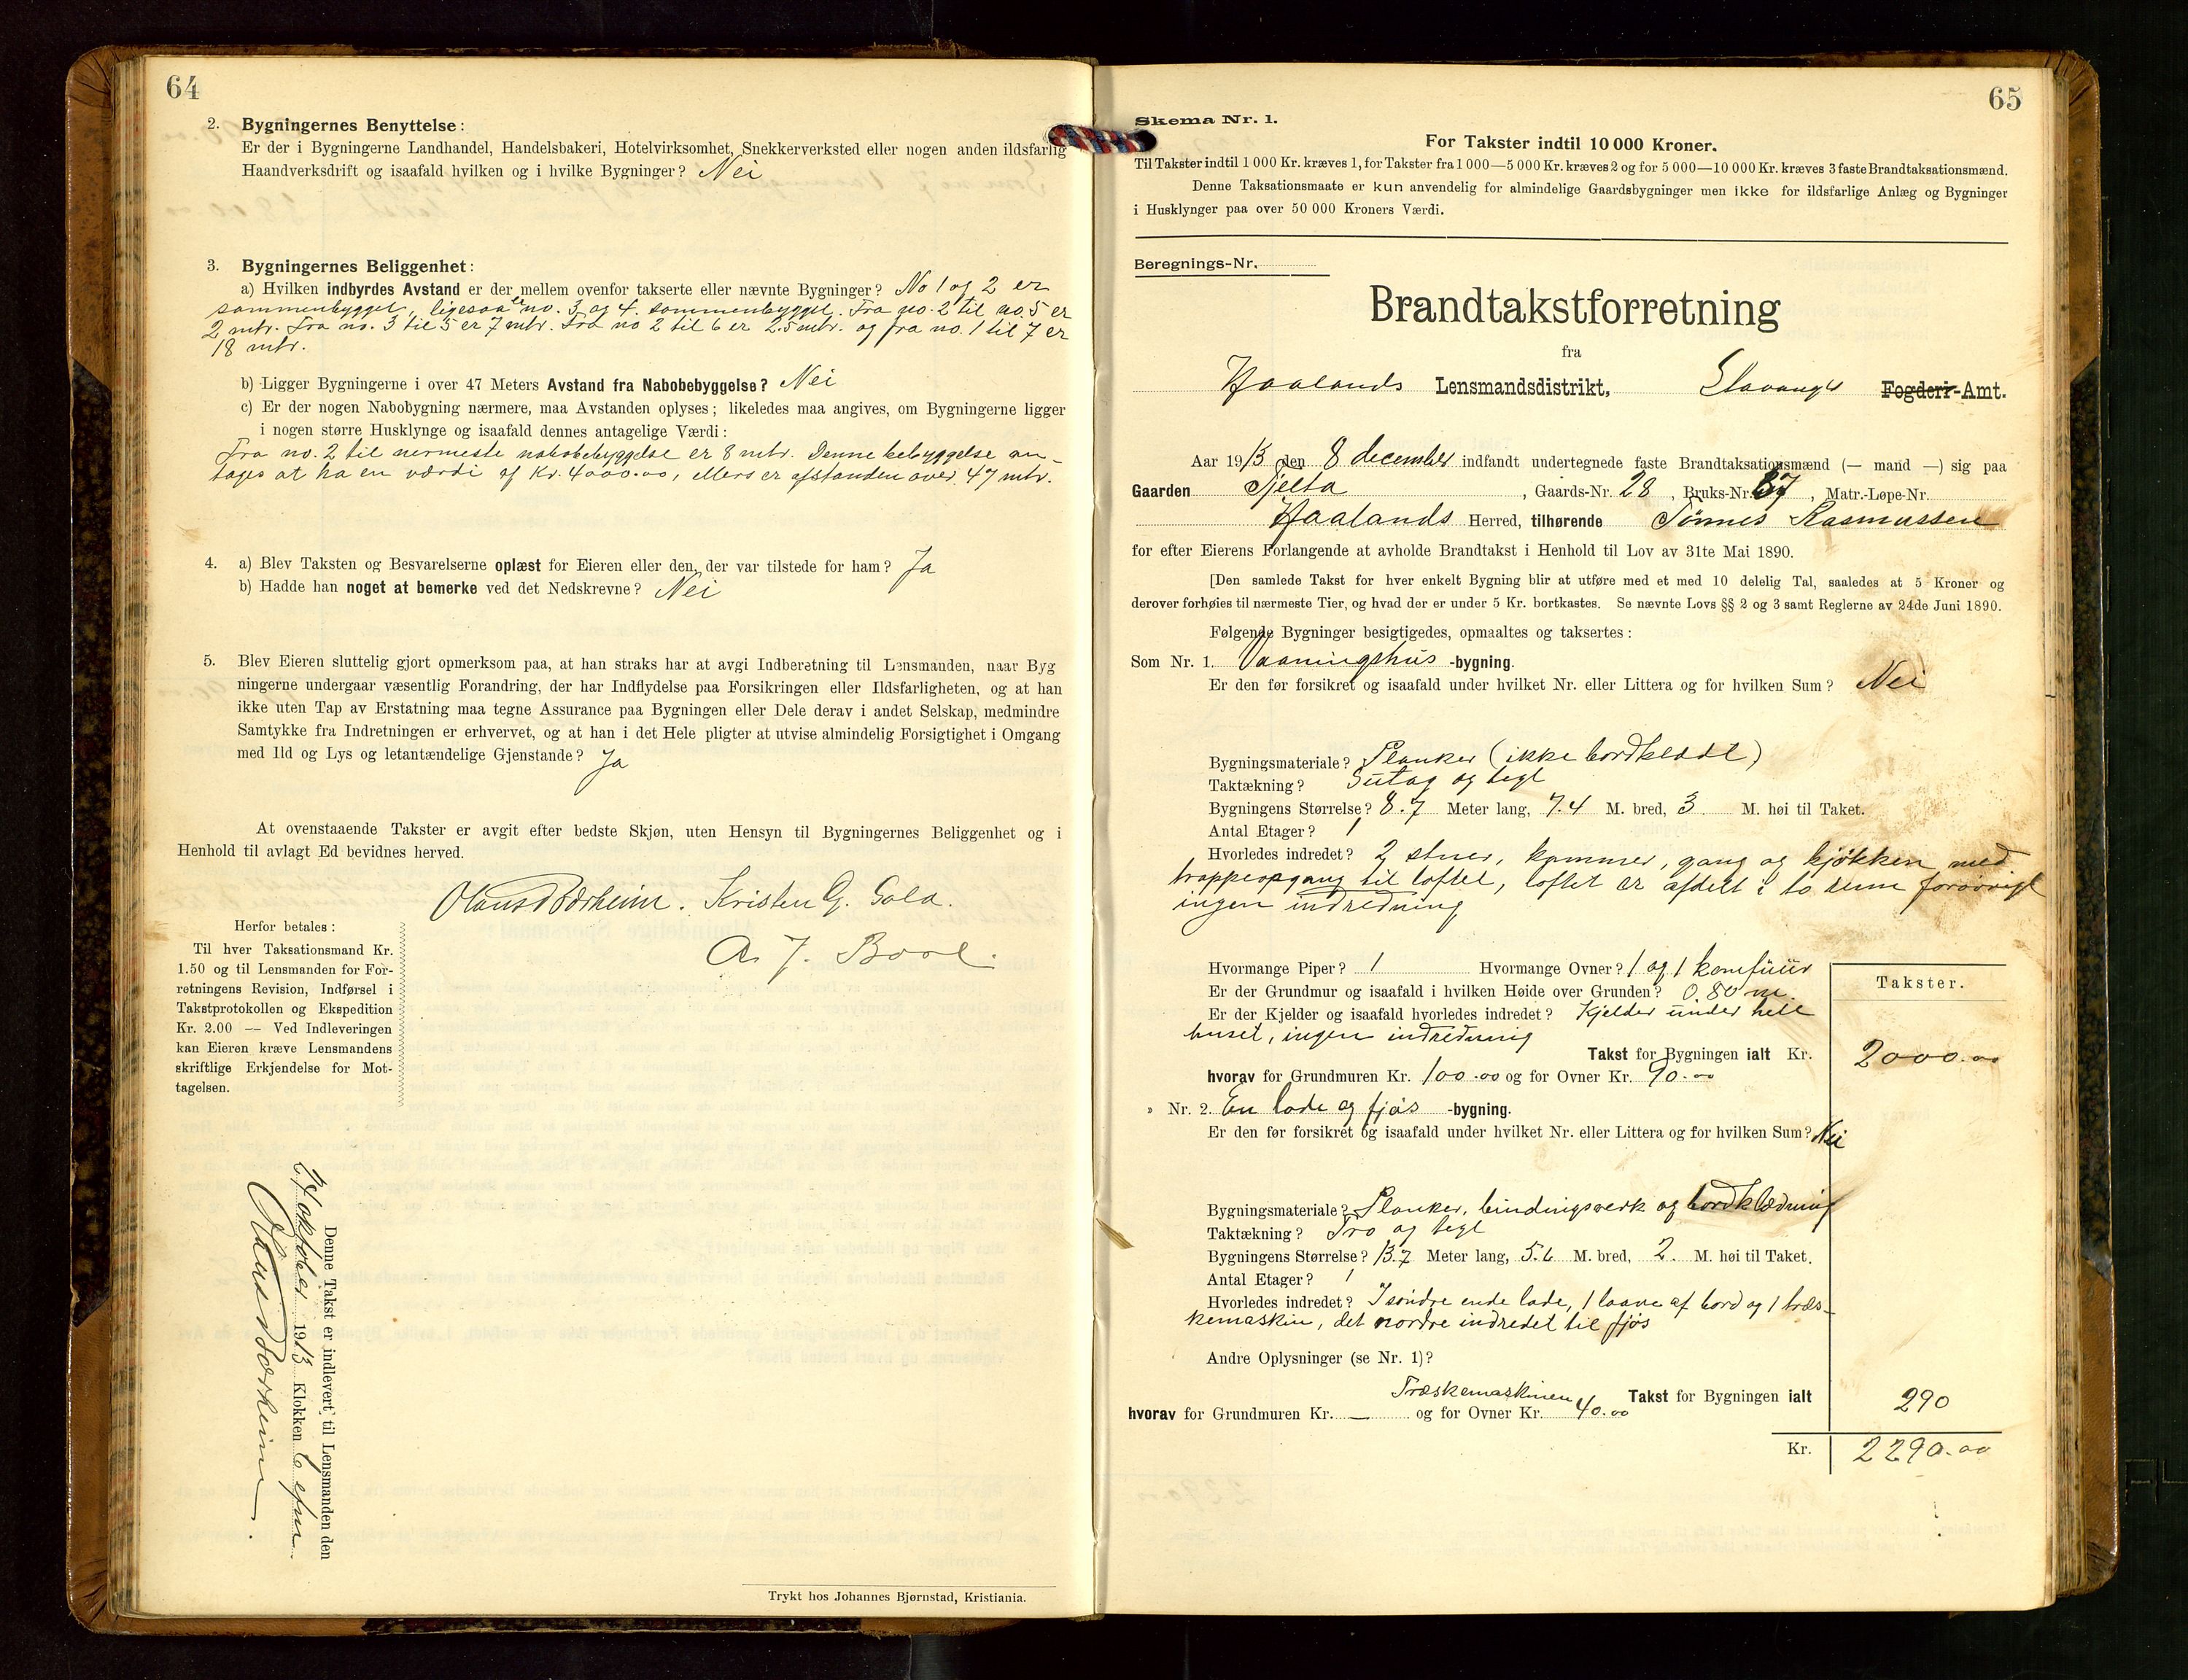 64
2. Bygningernes Benyttelse:
Er der i Bygningerne Landhandel, Handelsbakeri, Hotelvirksomhet, Snekkerverksted eller nogen anden ildsfarlig
Haandverksdrift og isaafald hvilken og i hvilke Bygninger? Nei
3. Bygningernes Beliggenhet:
a) Hvilken indbyrdes Avstand er der mellem ovenfor takserte eller nævnte Bygninger? No 1 og 2 er
sammenbygget, ligesaa no. 3 og 4. sammenbygget. Fra no. 2 til no. 5 er
2 mtr. Fra no. 3 til 5 er 7 mtr. Fra no 2 til 6 er 25 mtr. og fra no. 1 til 7 er
18 mtr.
b) Ligger Bygningerne i over 47 Meters Avstand fra Nabobebyggelse? Nei
c) Er der nogen Nabobygning nærmere, maa Avstanden oplyses; likeledes maa angives, om Bygningerne ligger
i nogen større Husklynge og isaafald dennes antagelige Værdi:
Fra no. 2 til nermeste nabobebyggelse er 8 mtr. Denne bebyggelse an-
tages at ha en værdi af Kr. 4000.00, ellers er afstanden over 47 mtr.
4. a) Blev Taksten og Besvarelserne oplæst for Eieren eller den, der var tilstede for ham? Ja
b) Hadde han noget at bemerke ved det Nedskrevne? Nei
5. Blev Eieren sluttelig gjort opmerksom paa, at han straks har at avgi Indberetning til Lensmanden, naar Byg
ningerne undergaar væsentlig Forandring, der har Indflydelse paa Forsikringen eller Ildsfarligheten, og at han
ikke uten Tap av Erstatning maa tegne Assurance paa Bygningen eller Dele derav i andet Selskap, medmindre
Samtykke fra Indretningen er erhvervet, og at han i det Hele pligter at utvise almindelig Forsigtighet i Omgang
med Ild og Lys og letantændelige Gjenstande? Ja
At ovenstaaende Takster er avgit efter bedste Skjøn, uten Hensyn til Bygningernes Beliggenhet og i
Henhold til avlagt Ed bevidnes herved.
Olaus Børheim. Kristen G. Sola.
A. J. Booe.
Herfor betales:
Til hver Taksationsmand Kr.
1.50 og til Lensmanden for For-
retningens Revision, Indførsel i
Takstprotokollen og Ekspedition
Kr. 2.00 — Ved Indleveringen
kan Eieren kræve Lensmandens
skriftlige Erkjendelse for Mot-
tagelsen.
Denne Takst er indlevert til Lensmanden den
oktober 1913 Klokken 6 efm.
Olaus Børheim.
Trykt hos Johannes Bjørnstad, Kristiania.
65
Skema Nr. 1.
For Takster indtil 10 000 Kroner.
Til Takster indtil 1 000 Kr. kræves 1, for Takster fra 1 000—5 000 Kr. kræves 2 og for 5 000—10 000 Kr. kræves 3 faste Brandtaksationsmænd.
Denne Taksationsmaate er kun anvendelig for almindelige Gaardsbygninger men ikke for ildsfarlige Anlæg og Bygninger
i Husklynger paa over 50 000 Kroners Værdi.
Beregnings-Nr.
Brandtakstforretning
fra
Haalands Lensmandsdistrikt, Stavanger Fogderi-Amt.
Aar 1913 den 8 december indfandt undertegnede faste Brandtaksationsmænd (— mand —) sig paa
Gaarden Tjelta, Gaards-Nr. 28, Bruks-Nr. 37, Matr.-Løpe-Nr.
Haalands Herred, tilhørende Tönnes Rasmussen
for efter Eierens Forlangende at avholde Brandtakst i Henhold til Lov av 31te Mai 1890.
[Den samlede Takst for hver enkelt Bygning blir at utføre med et med 10 delelig Tal, saaledes at 5 Kroner og
derover forhøies til nærmeste Tier, og hvad der er under 5 Kr. bortkastes. Se nævnte Lovs §§ 2 og 3 samt Reglerne av 24de Juni 1890.
Følgende Bygninger besigtigedes, opmaaltes og taksertes:
Som Nr. 1. Vaaningshus -bygning.
Er den før forsikret og isaafald under hvilket Nr. eller Littera og for hvilken Sum? Nei
Bygningsmateriale? Planker (ikke bordklædt)
Taktækning? Sutag og tegl
Bygningens Størrelse? 8.7 Meter lang, 7.4 M. bred, 3 M. høi til Taket.
Antal Etager? 1
Hvorledes indredet? 2 stuer, kammer, gang og kjøkken med
trappeopgang til loftet, loftet er afdelt i to rum forøvrigt
ingen indredning
Hvormange Piper? 1 Hvormange Ovner? 1 og 1 komfüür
Er der Grundmur og isaafald i hvilken Høide over Grunden? 0.80 m.
Er der Kjelder og isaafald hvorledes indredet? Kjelder under hele
huset, ingen indredning
Takster.
Takst for Bygningen ialt Kr. 2000.00
hvorav for Grundmuren Kr. 100.00 og for Ovner Kr. 90.00
» Nr. 2. En lade og fjøs -bygning.
Er den før forsikret og isaafald under hvilket Nr. eller Littera og for hvilken Sum? Nei
Bygningsmateriale? Planker, bindingsverk og bordklædning
Taktækning? Tro og tegl
Bygningens Størrelse? 13.7 Meter lang, 5.6 M. bred, 2. M. høi til Taket.
Antal Etager? 1
Hvorledes indredet? I søndre ende lade, 1 laave af bord og 1 træs-
kemaskin, det nordre indredet til fjøs
Andre Oplysninger (se Nr. 1)?
Træskemaskinen Takst for Bygningen ialt 290
hvorav for Grundmuren Kr. — og for Ovner Kr. 40.00
Kr. 2290.00